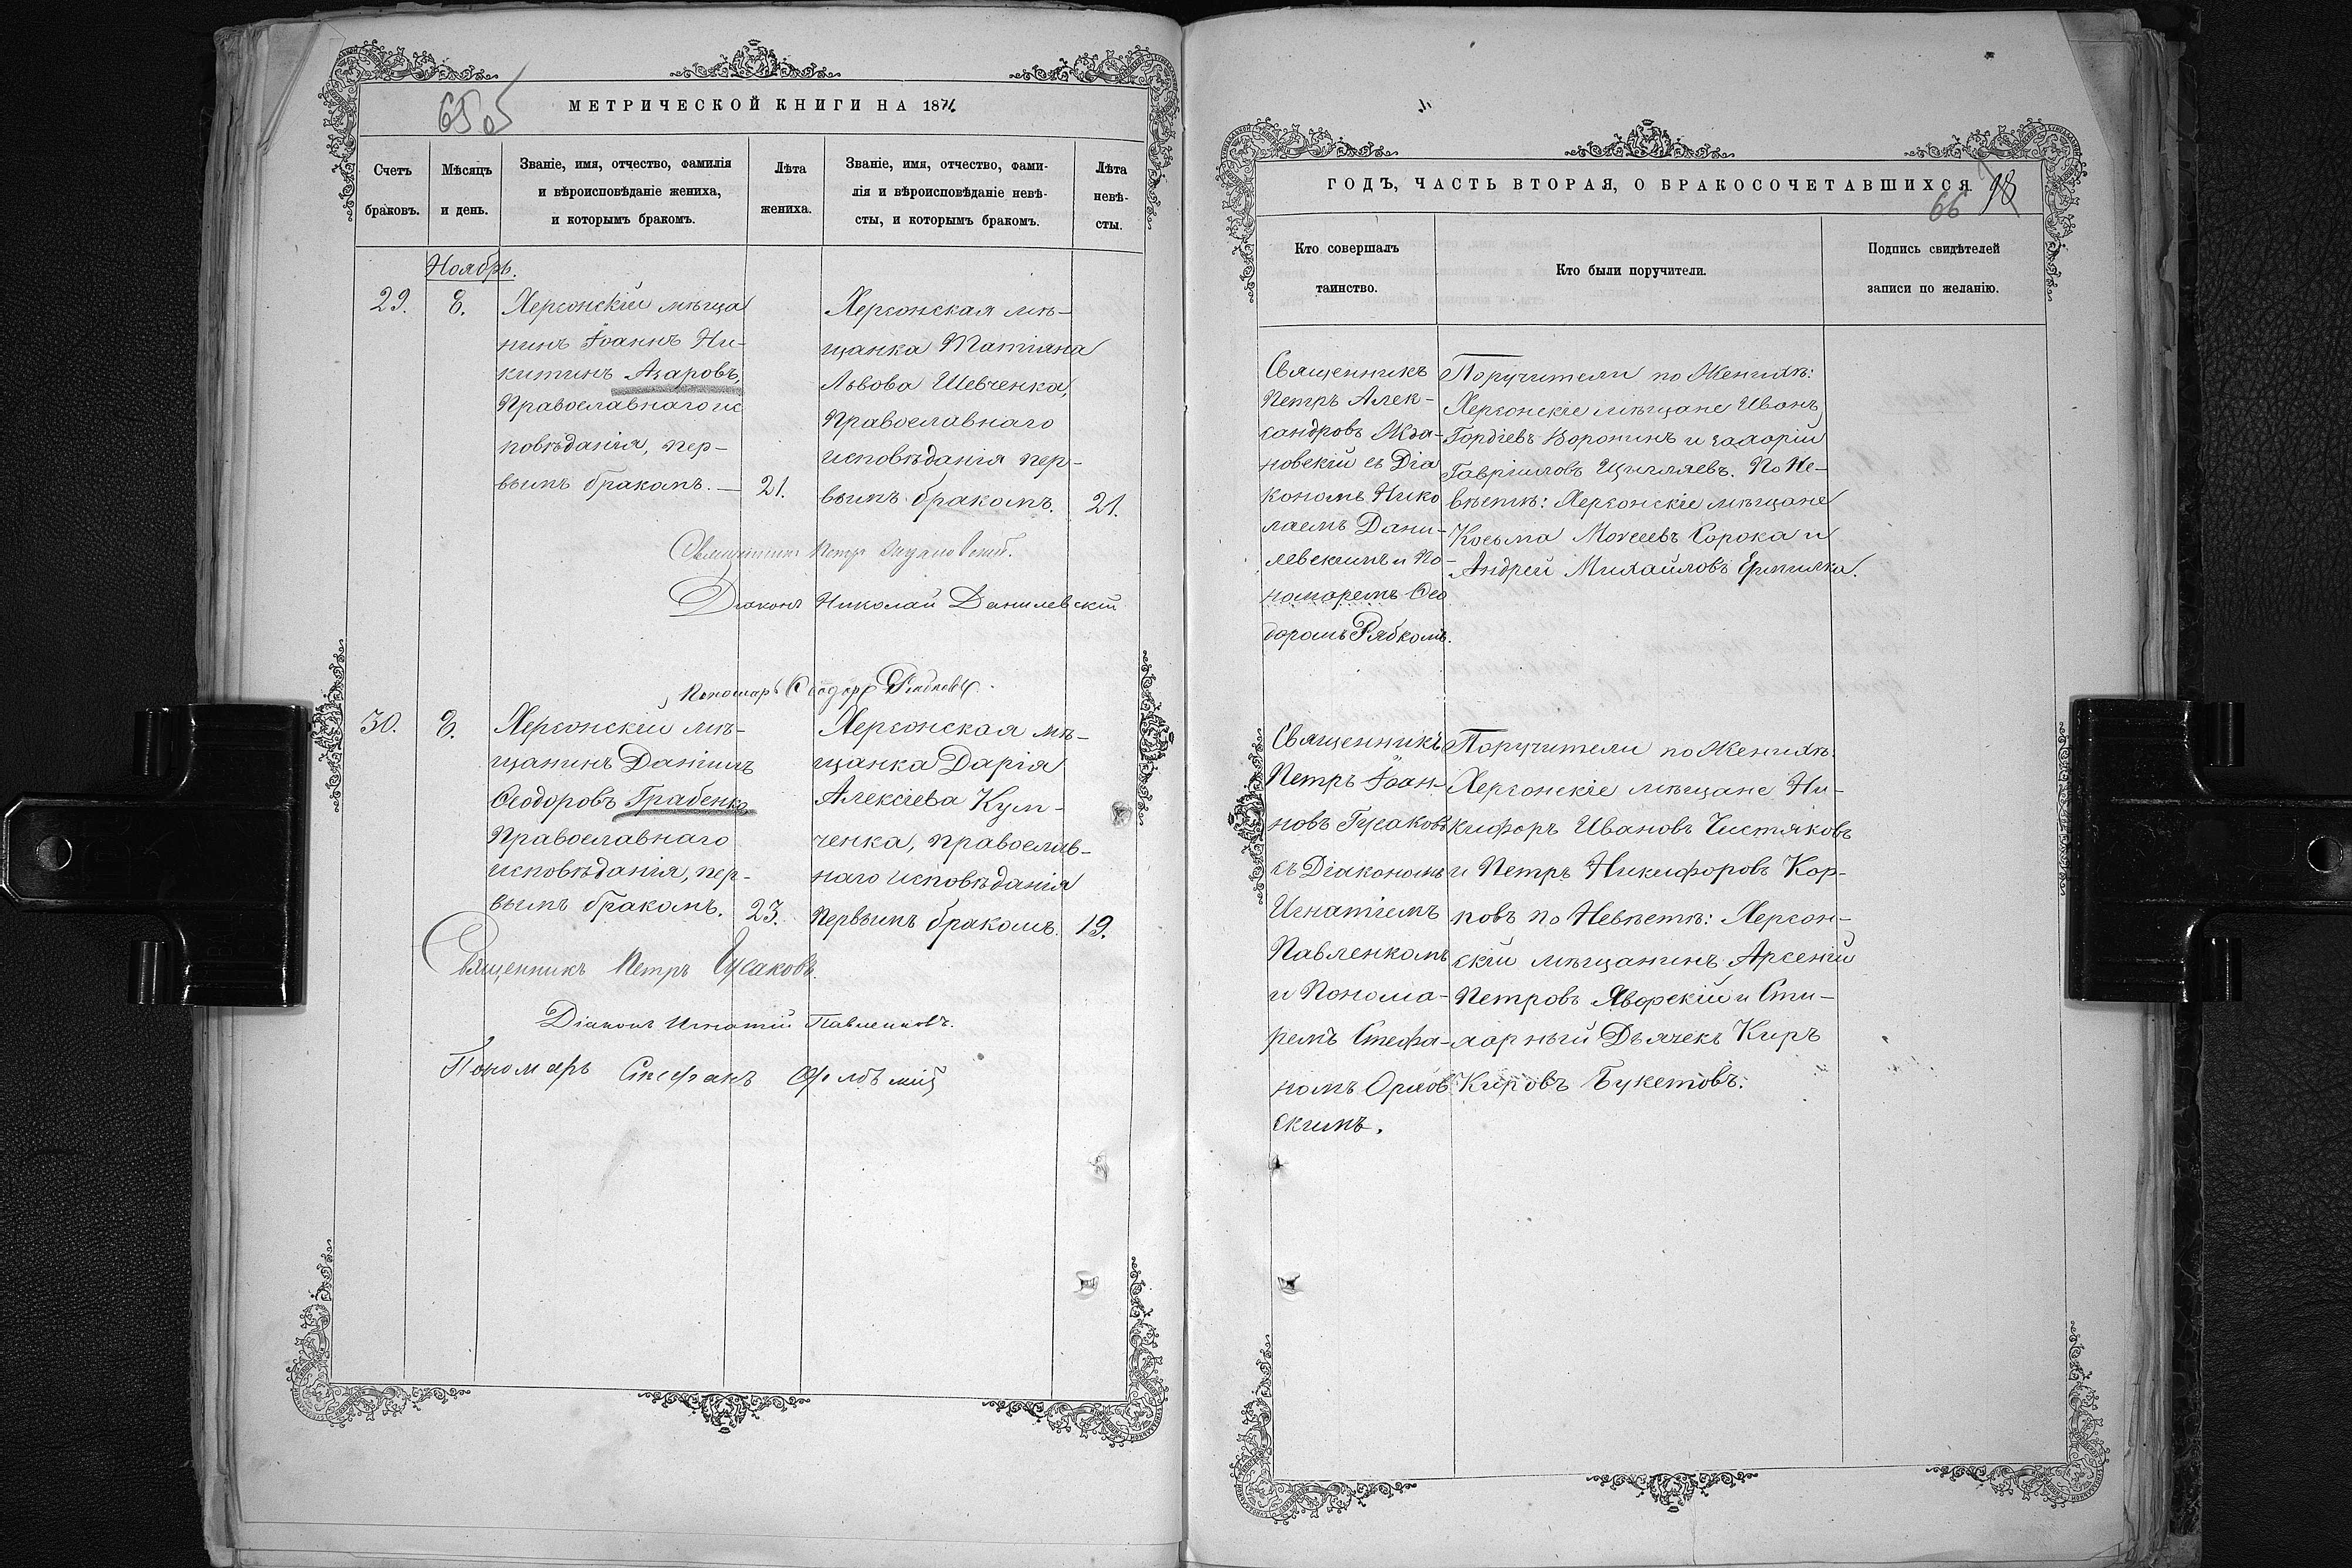 65
МЕТРИЧЕСКОЙ КНИГИ НА 1871.
Счетъ браковъ.
Мѣсяцъ и день.
Званіе, имя, отчество, фамилія
и вѣроисповѣданіе жениха,
и которымъ бракомъ.
Лѣта жениха.
Званіе, имя, отчество, фами-
лія и вѣроисповѣданіе невѣ-
сты, и которымъ бракомъ.
Лѣта невѣ-
сты.
Ноябрь.
29.
8.
Херсонскій мѣща
нинъ Іоаннъ Ни-
китинъ Азаровъ,
Православнаго ис
повѣданія, пер-
вымъ бракомъ. —
21.
Херсонская мѣ-
щанка Татіяна
Львова Шевченка,
Православнаго
исповѣданія пер-
вымъ бракомъ.
21.
Священникъ Петръ
Діаконъ Николай Данилевскій
Пономарь Ѳеодоръ
30.
8.
Херсонскій мѣ-
щанинъ Даніилъ
Ѳеодоровъ Грабенко
Православнаго
исповѣданія, пер-
вымъ бракомъ.
23.
Херсонская мѣ-
щанка Дарія
Алексіева Кум-
ченка, православ-
наго исповѣданія
первымъ бракомъ.
19.
Священникъ Петръ Гусаковъ.
Діаконъ Игнатій Павленковъ.
Пономарь Стефанъ
ГОДЪ, ЧАСТЬ ВТОРАЯ, О БРАКОСОЧЕТАВШИХСЯ.
66
98
Кто совершалъ
таинство.
Кто были поручители.
Подпись свидѣтелей
записи по желанію.
Священникъ
Петръ Алек-
сандровъ
новскій съ Діа
кономъ Нико
лаемъ Дани-
левскимъ и По-
номаремъ Ѳео
доромъ Рябкомъ.
Поручители по Женихѣ:
Херсонскіе мѣщане Иванъ
Гордіевъ Воронинъ и Захарій
Гавріиловъ По Не-
вѣстѣ: Херсонскіе мѣщане
Косьма Моѵсеевъ Сорока и
Андрей Михайловъ
Священникъ
Петръ Іоан-
новъ Гусаковъ
съ Діакономъ
Игнатіемъ
Павленкомъ
и Понома-
ремъ Стефа-
номъ Орлов-
скимъ.
Поручители по Женихѣ:
Херсонскіе мѣщане Ни-
кифоръ Ивановъ Чистяковъ
и Петръ Никифоровъ Кар-
повъ по Невѣстѣ: Херсон-
скій мѣщанинъ Арсеній
Петровъ Яворскій и Сти-
харный Дьячекъ Киръ
Кировъ Букетовъ.